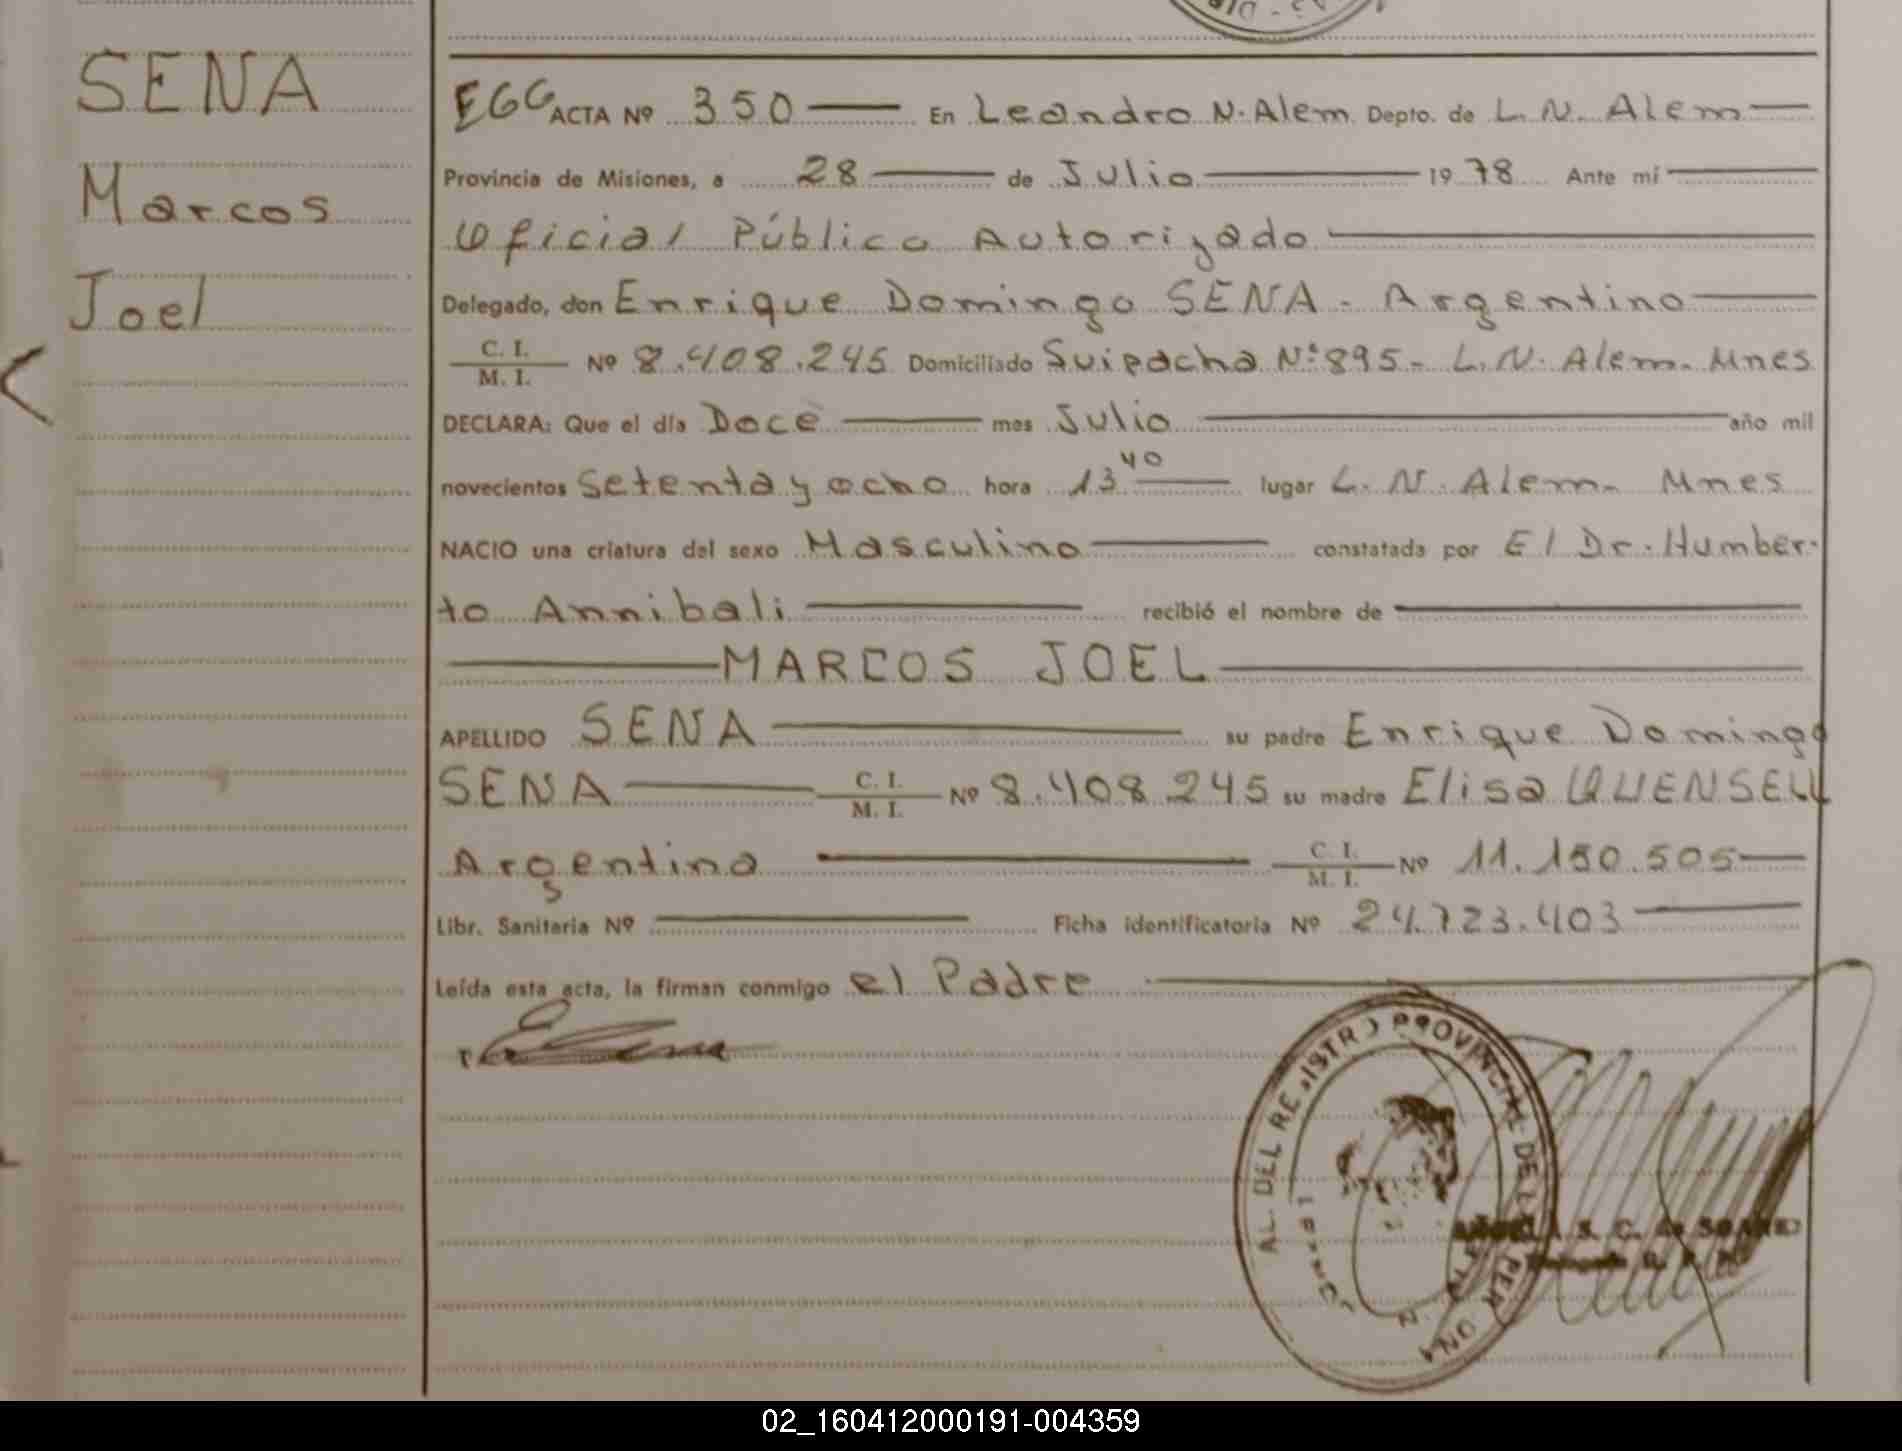 SENA
Marcos
Joel
EGG ACTA Nº 350 En Leandro N. Alem Depto. de L. N. Alem
Provincia de Misiones, a 28 de Julio 19 78 Ante mí
Oficial Público Autorizado
Delegado, don Enrique Domingo SENA - Argentino
C. I. / M. I. Nº 8.408.245 Domiciliado Suipacha Nº 895 - L. N. Alem - Mnes
DECLARA: Que el día Doce mes Julio año mil
novecientos Setenta y ocho hora 13 40 lugar L. N. Alem - Mnes
NACIO una criatura del sexo Masculino constatada por El Dr. Humber-
to Annibali recibió el nombre de
MARCOS JOEL
APELLIDO SENA su padre Enrique Domingo
SENA C. I. / M. I. Nº 8.408.245 su madre Elisa QUENSELL
Argentina C. I. / M. I. Nº 11.150.505
Libr. Sanitaria Nº Ficha identificatoria Nº 24.723.403
Leída esta acta, la firman conmigo el Padre
AL. DEL REGISTRO PROVINCIAL DE
S. C. de
02_160412000191-004359